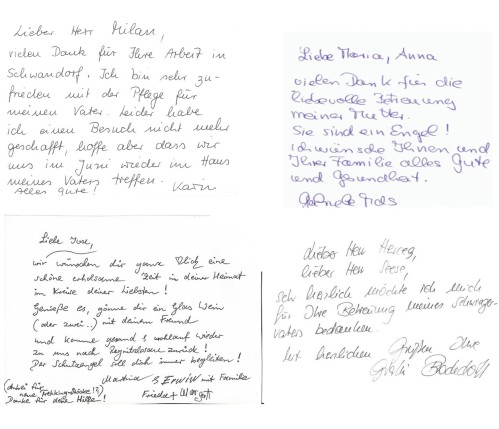 Lieber Herr Milan,
vielen Dank für Ihre Arbeit in
Schwandorf. Ich bin sehr zu-
frieden mit der Pflege für
meinen Vater. Leider habe
ich einen Besuch nicht mehr
geschafft, hoffe aber dass wir
uns im Juni wieder im Haus
meines Vaters treffen.
Alles Gute! Karin
Liebe Maria, Anna
vielen Dank für die
liebevolle Betreuung
meiner Mutter.
Sie sind ein Engel!
Ich wünsche Ihnen und
Ihrer Familie alles Gute
und Gesundheit.
Liebe
wir wünschen dir ganz eine
schöne erholsame Zeit in deiner Heimat
im Kreise deiner Liebsten!
Genieße es, gönne dir ein Glas Wein
(oder zwei..) mit deinem Freund
und komme gesund & wohlauf wieder
zu uns nach zurück!
Der Schutzengel soll dich immer begleiten!
Martina & Erwin mit Familie
Frieda + Margott
für
neue
Danke für deine Hilfe!
Lieber Herr Herceg,
lieber Herr
sehr herzlich möchte ich mich
für Ihre Betreuung meines Schwieger-
vaters bedanken.
Mit herzlichen Grüßen Ihre